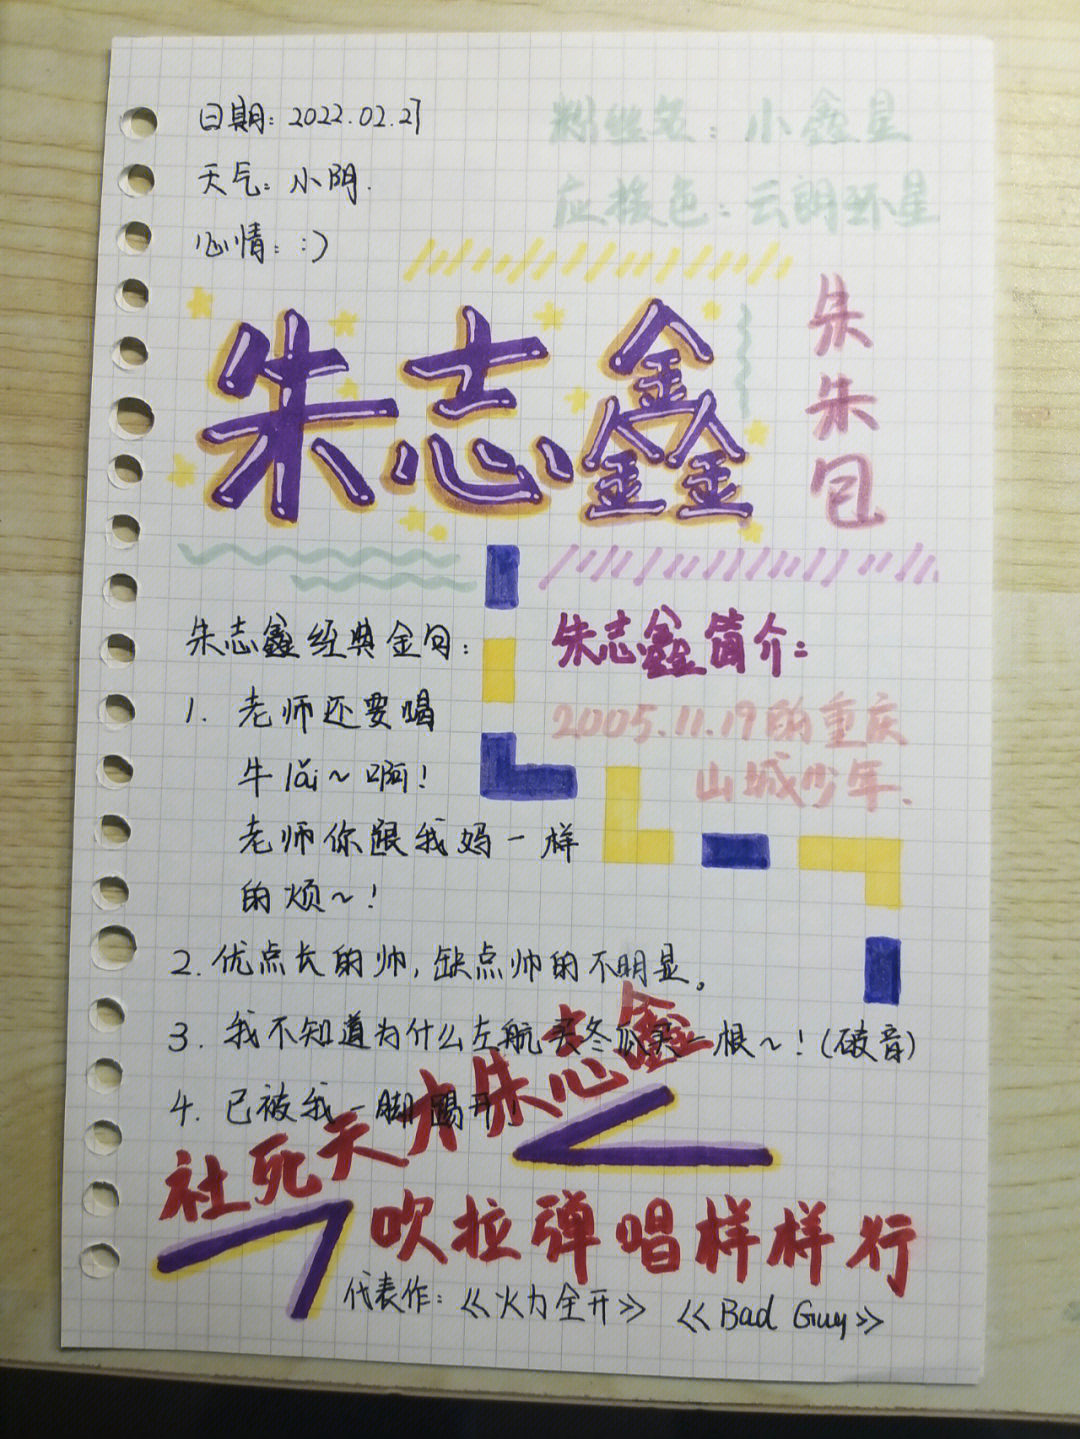 日期：2022.02.27
天气：小阴.
心情：:)
粉丝名：小鑫星
应援色：云朗环星
朱志鑫
朱朱包
朱志鑫经典金句：
1. 老师还要喝
牛lǎi~啊！
老师你跟我妈一样
的烦~！
2. 优点长的帅，缺点帅的不明显。
3. 我不知道为什么左航买冬瓜买一根~！(破音)
4. 已被我一脚踢开！
朱志鑫简介：
2005.11.19的重庆
山城少年.
社死天才朱志鑫
吹拉弹唱样样行
代表作：《火力全开》 《Bad Guy》